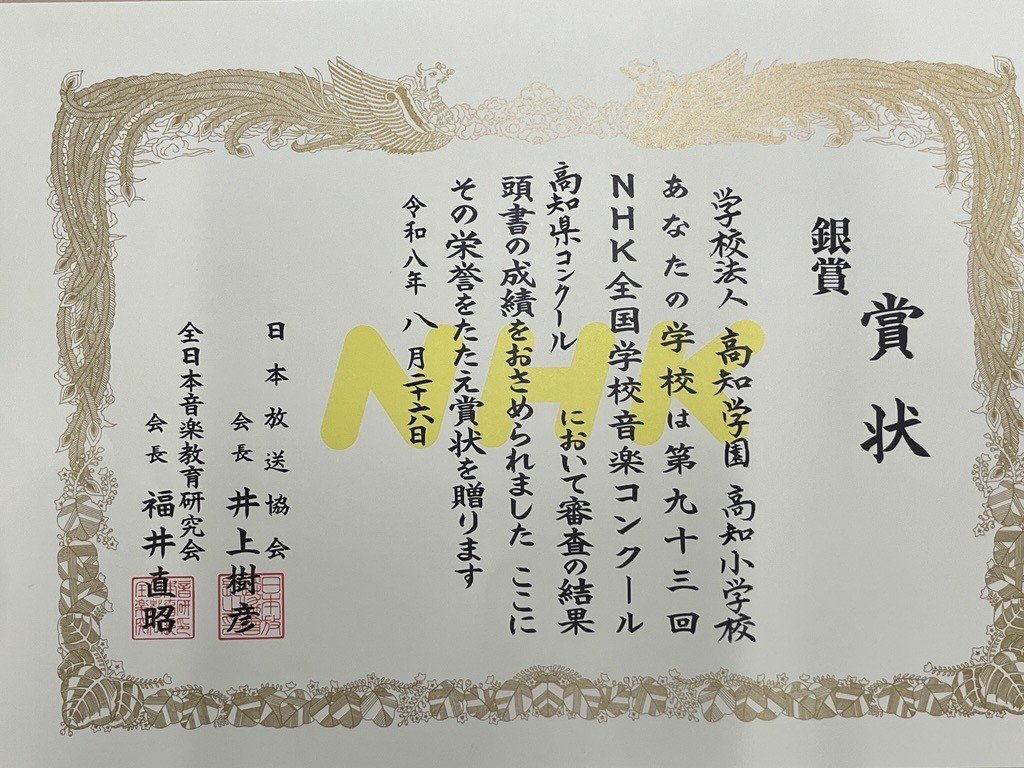 賞状
銀賞
学校法人 高知学園 高知小学校
あなたの学校は第九十三回
NHK全国学校音楽コンクール
高知県コンクール において審査の結果
頭書の成績をおさめられました ここに
その栄誉をたたえ賞状を贈ります
令和八年 八月二十六日
日本放送協会
会長 井上樹彦
全日本音楽教育研究会
会長 福井直昭
NHK